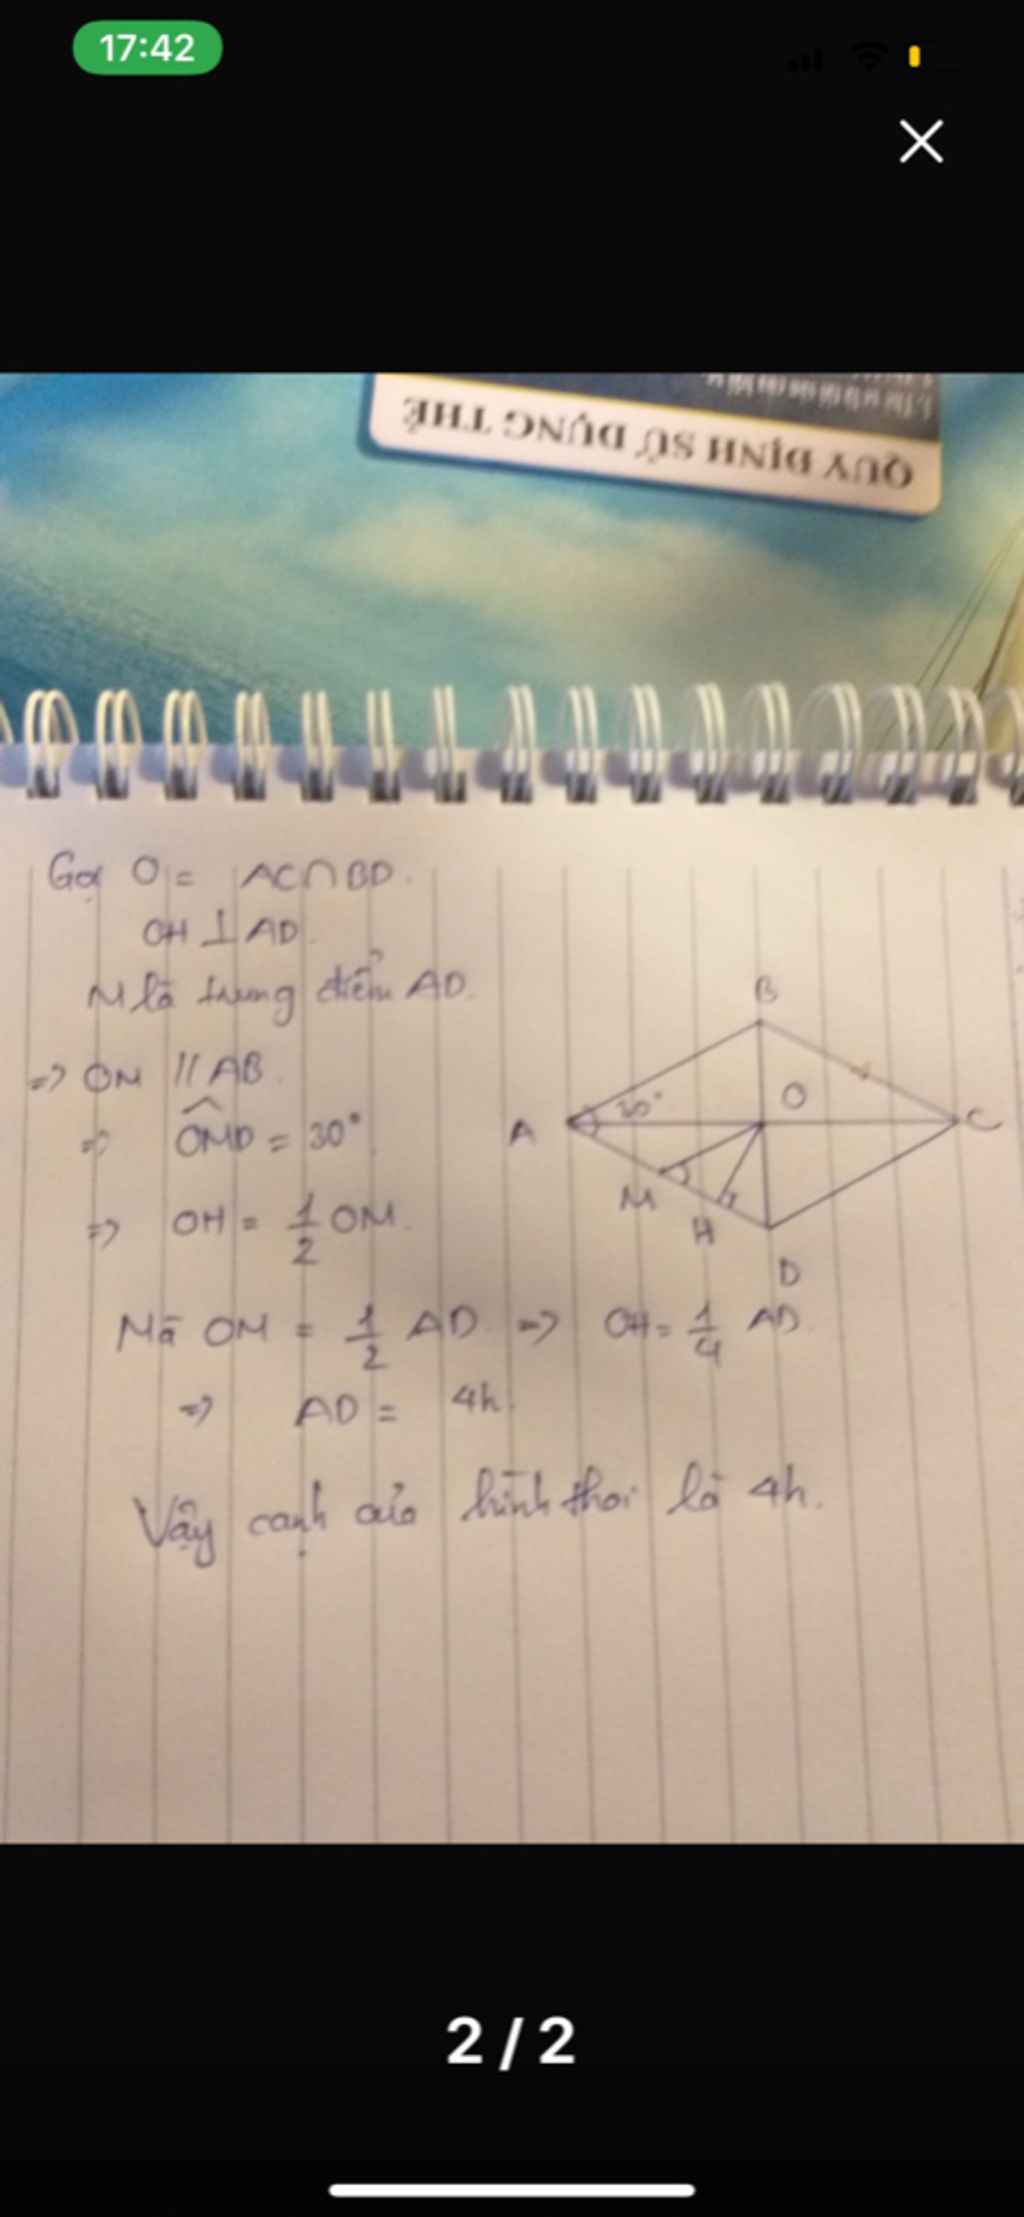 17:42
QUY ĐỊNH SỬ DỤNG THẺ
Gọi O = AC∩BD.
OH ⊥ AD.
M là trung điểm AD.
=> OM // AB.
=> OMD = 30°
=> OH = 1/2 OM.
Mà OM = 1/2 AD. => OH = 1/4 AD.
=> AD = 4h.
Vậy cạnh của hình thoi là 4h.
B
30°
O
A
C
M
H
D
2 / 2